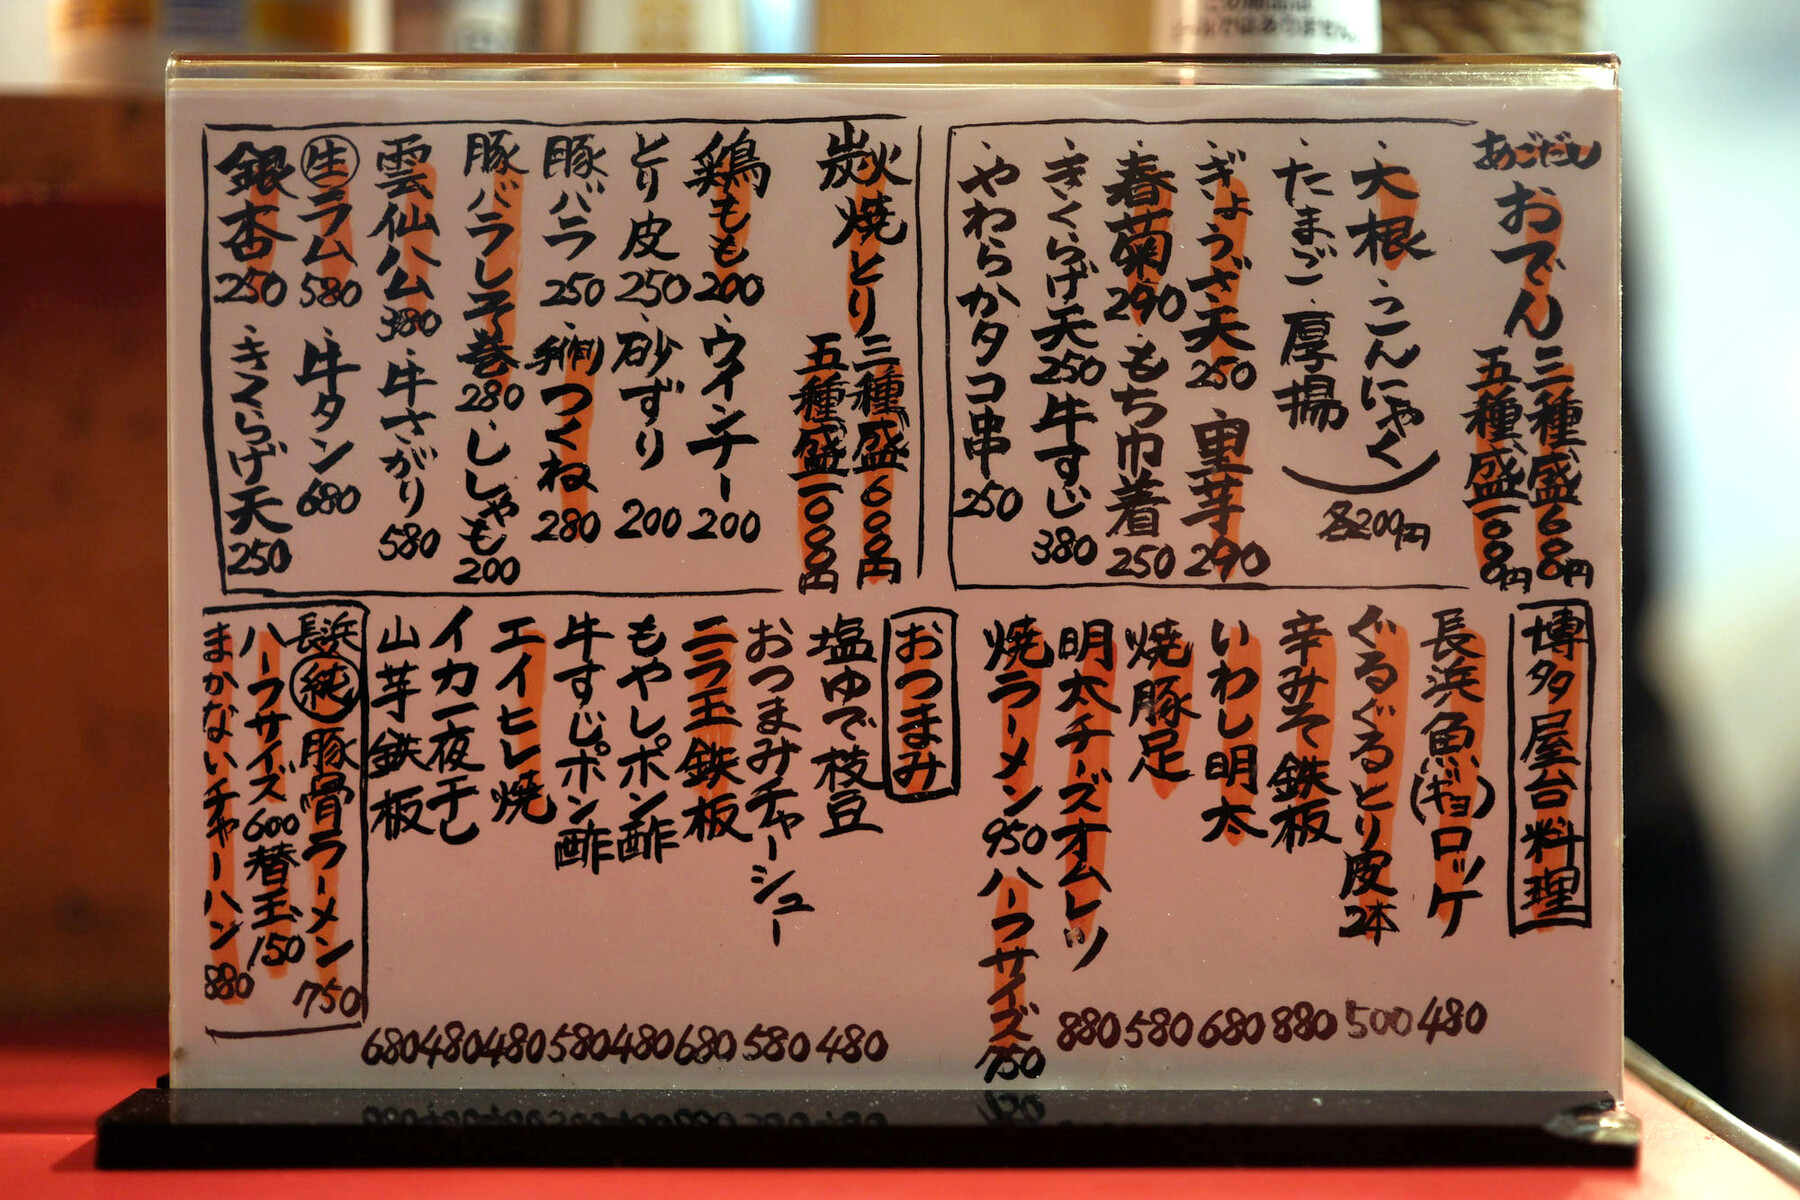 この商品は
ールではありません
あごだし
おでん
三種盛600円
五種盛1000円
・大根・こんにゃく
・たまご・厚揚
各200円
・ぎょうざ天250 里芋290
・春菊290・もち巾着250
・きくらげ天250牛すじ380
・やわらかタコ串250
炭火焼とり
三種盛600円
五種盛1000円
鶏もも200・ウインナー200
とり皮250・砂ずり200
豚バラ250・つくね280
豚バラしそ巻280・ししゃも200
雲仙公380・牛さがり580
生ラム580・牛タン680
銀杏250・きくらげ天250
博多屋台料理
長浜魚(ギョ)ロッケ480
ぐるぐるとり皮2本500
辛みそ鉄板880
いわし明太680
焼豚足580
明太チーズオムレツ880
焼ラーメン950ハーフサイズ750
おつまみ
塩ゆで枝豆480
おつまみチャーシュー580
ニラ玉鉄板680
もやしポン酢480
牛すじポン酢580
エイヒレ焼480
イカ一夜干し480
山芋鉄板680
長浜純豚骨ラーメン750
ハーフサイズ600替玉150
まかないチャーハン880